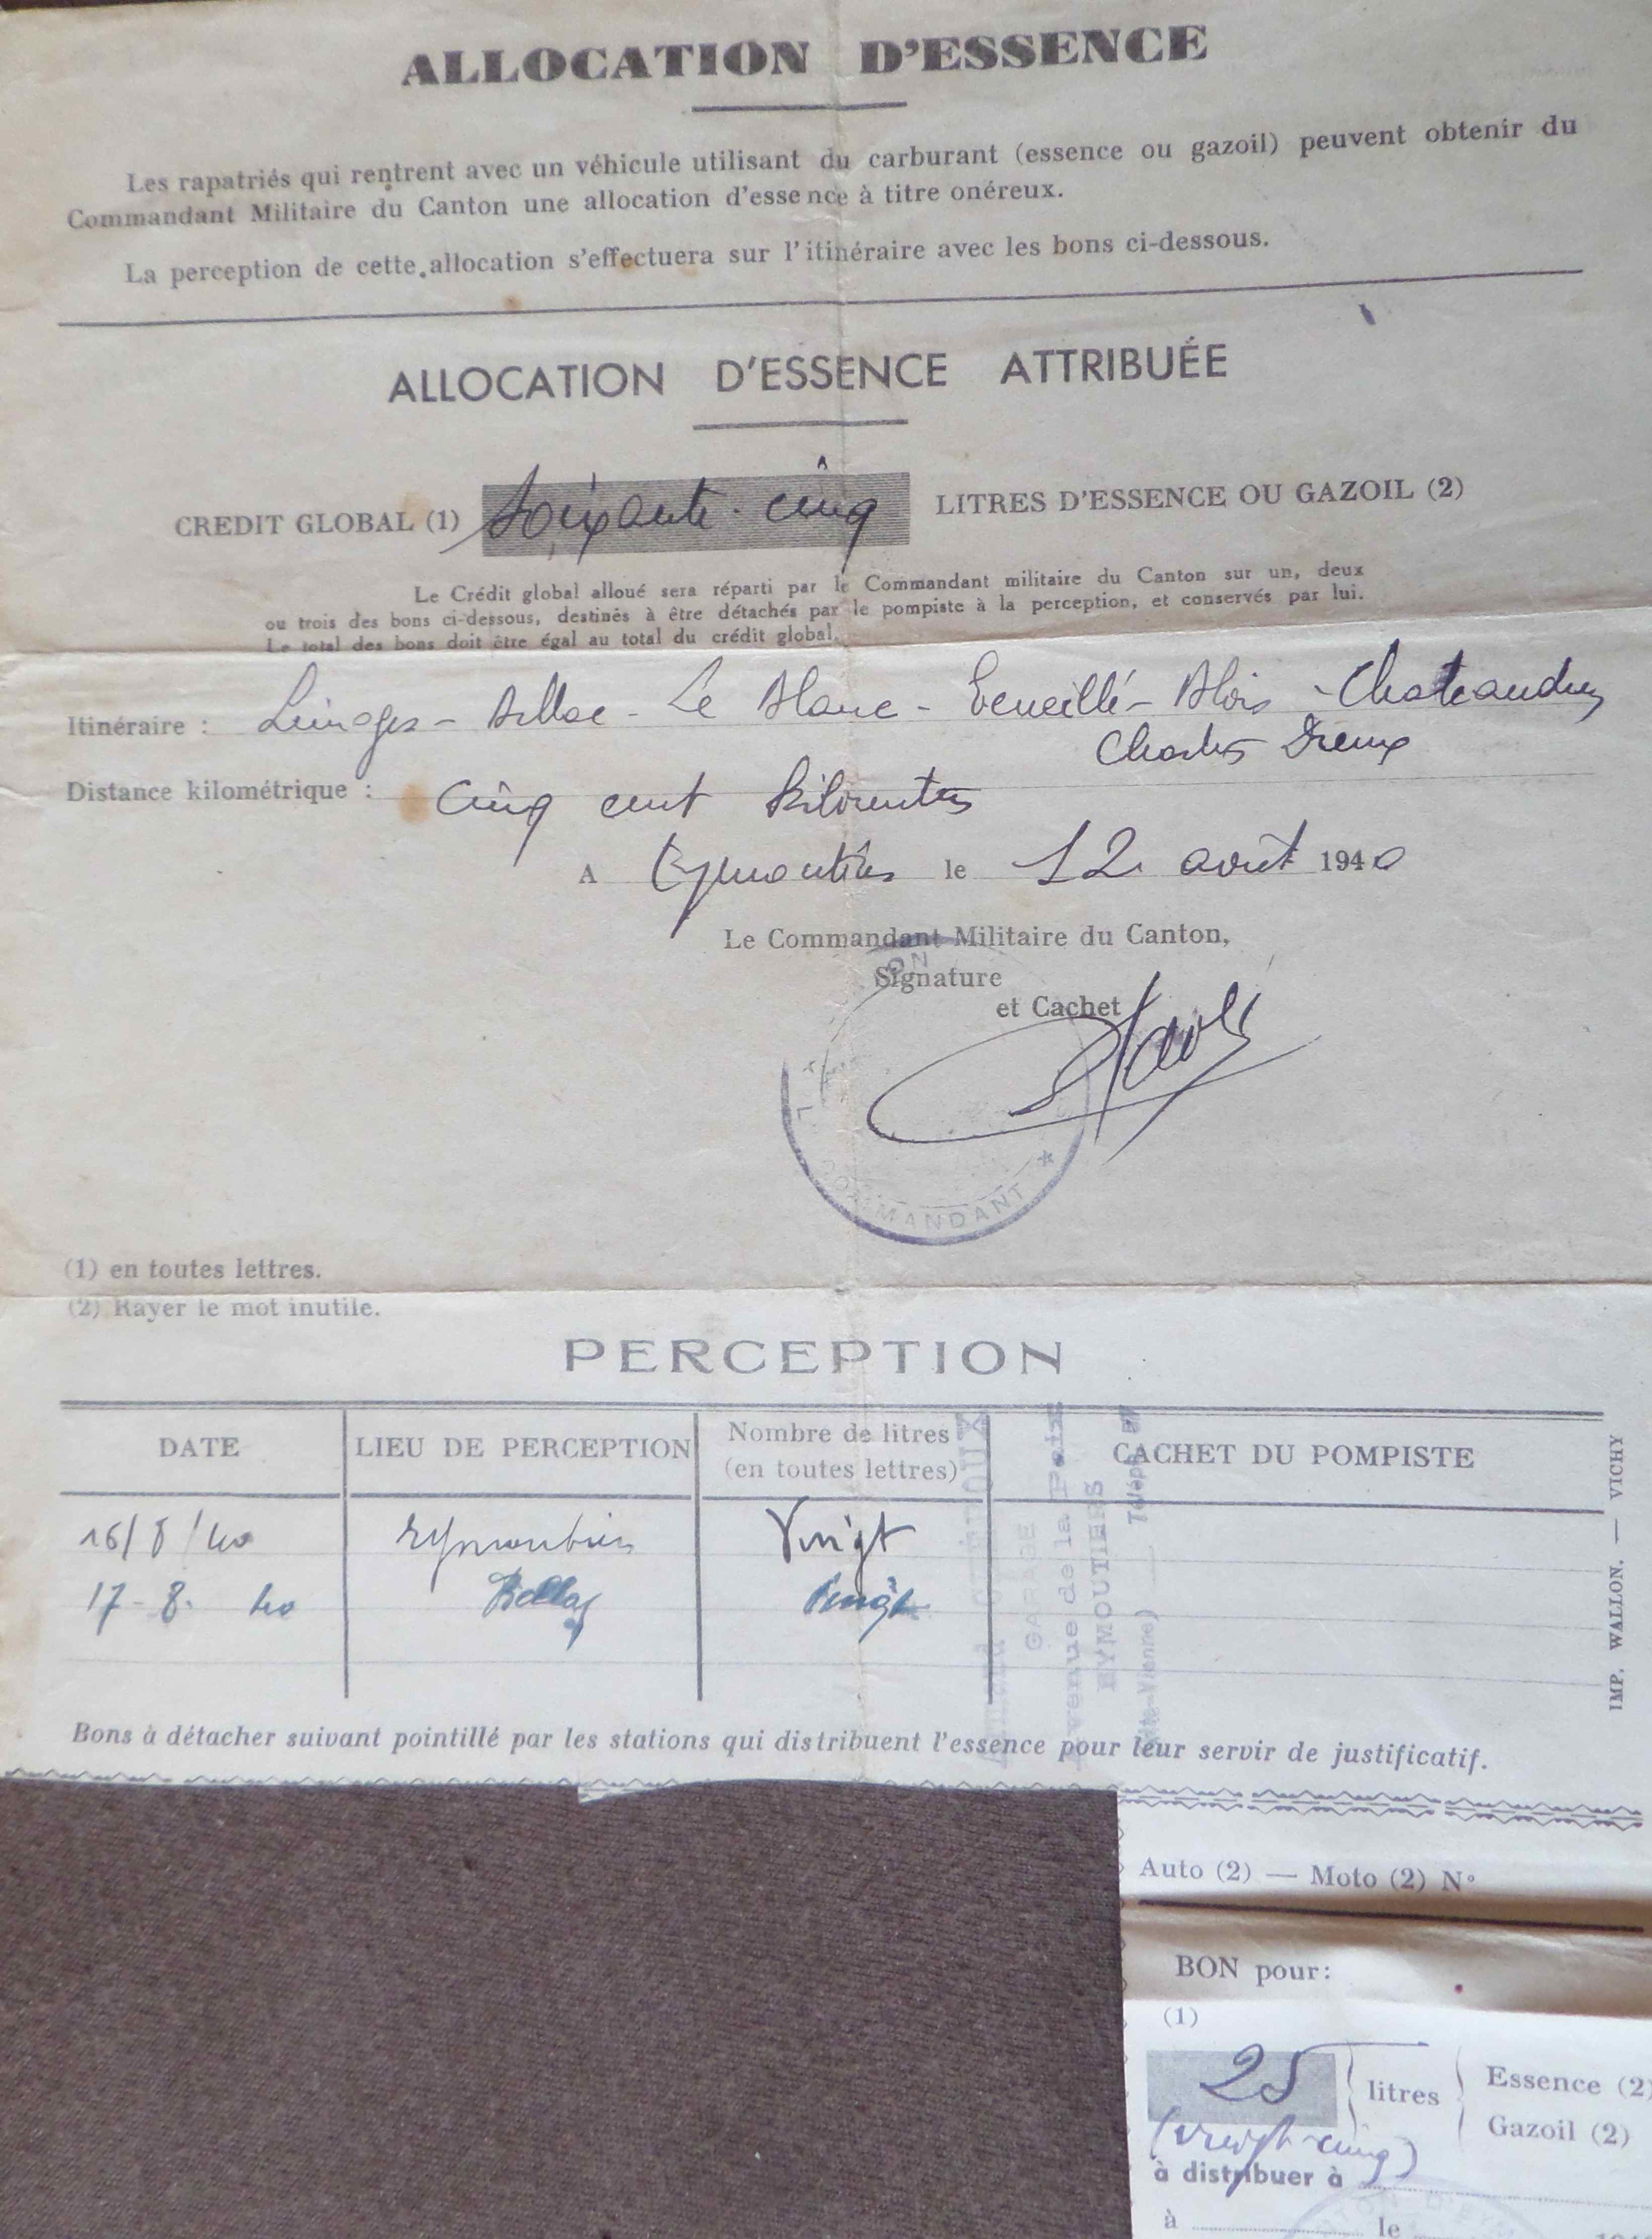 ALLOCATION D'ESSENCE
Les rapatriés qui rentrent avec un véhicule utilisant du carburant (essence ou gazoil) peuvent obtenir du
Commandant Militaire du Canton une allocation d'essence à titre onéreux.
La perception de cette allocation s'effectuera sur l'itinéraire avec les bons ci-dessous.
ALLOCATION D'ESSENCE ATTRIBUÉE
CREDIT GLOBAL (1) Soixante-cinq LITRES D'ESSENCE OU GAZOIL (2)
Le Crédit global alloué sera réparti par le Commandant militaire du Canton sur un, deux
ou trois des bons ci-dessous, destinés à être détachés par le pompiste à la perception, et conservés par lui.
Le total des bons doit être égal au total du crédit global.
Itinéraire : Limoges - Bellac - Le Blanc - - Blois - Chateaudun
Dreux
Distance kilométrique : Cinq cent kilomètres
A Eymoutiers le 12 août 1940
Le Commandant Militaire du Canton,
Signature
et Cachet
COMMANDANT
(1) en toutes lettres.
(2) Rayer le mot inutile.
PERCEPTION
DATE LIEU DE PERCEPTION Nombre de litres (en toutes lettres) CACHET DU POMPISTE
16/8/40 Eymoutiers Vingt
17-8-40 Bellac Vingt
GARAGE
Avenue de la Paix
EYMOUTIERS
(Hte-Vienne) Téléph.
IMP. WALLON. — VICHY
Bons à détacher suivant pointillé par les stations qui distribuent l'essence pour leur servir de justificatif.
Auto (2) — Moto (2) N°
BON pour:
(1)
25 litres Essence (2)
Gazoil (2)
(vingt-cinq)
à distribuer à
à le